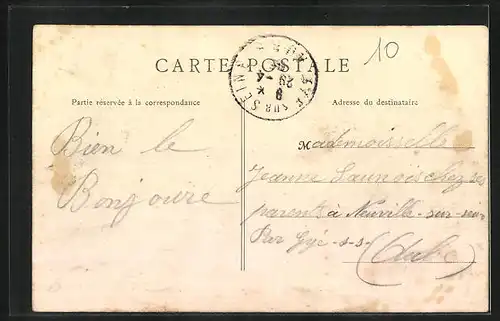 CARTE POSTALE
10
Partie réservée à la correspondance
Adresse du destinataire
Bien le
Bonjoure
Mademoiselle
Jeanne Launois chez ses
parents à Neuville-sur-sein
Par Gyé-s-s-
(Aube)
SUR SEINE
29 -4
9
*